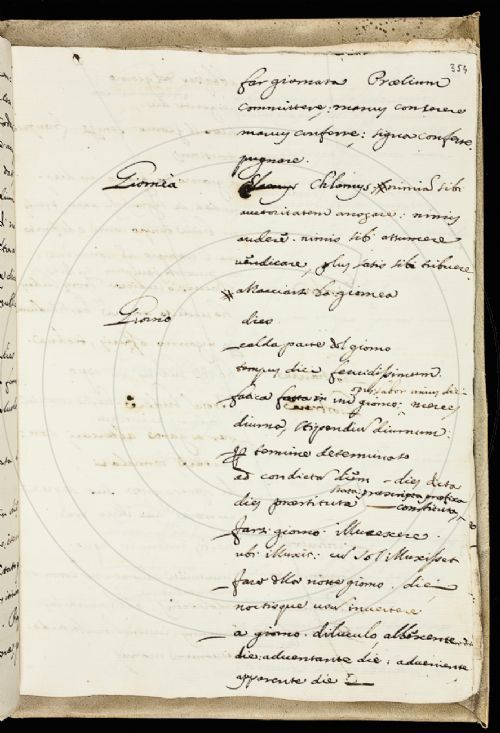 354
far giornata Prælium
committere; manus conserere
manus conferre; signa conferre
pugnare.
Giornea
Chlamys; # nimia sibi
auctoritatem arrogare: nimis
audere: nimis sibi assumere
vendicare, plus satis sibi tribuere.
# allacciarsi la giornea
Giorno
dies
calda parte del giorno
tempus diei fervidissimum
fatica fatta in un giorno; merces
labor unius diei
diurna, stipendium diurnum:
termine determinato
ad condictam diem - dies dicta
stata prescripta prefixa
dies præstituta constituta
farsi giorno. illucescere.
ubi illuxit: cum sol illuxisset
fare della notte giorno. diei
noctisque usus invertere
a giorno. diluculo, albescente die
die; adventante die; adveniente
apparente die